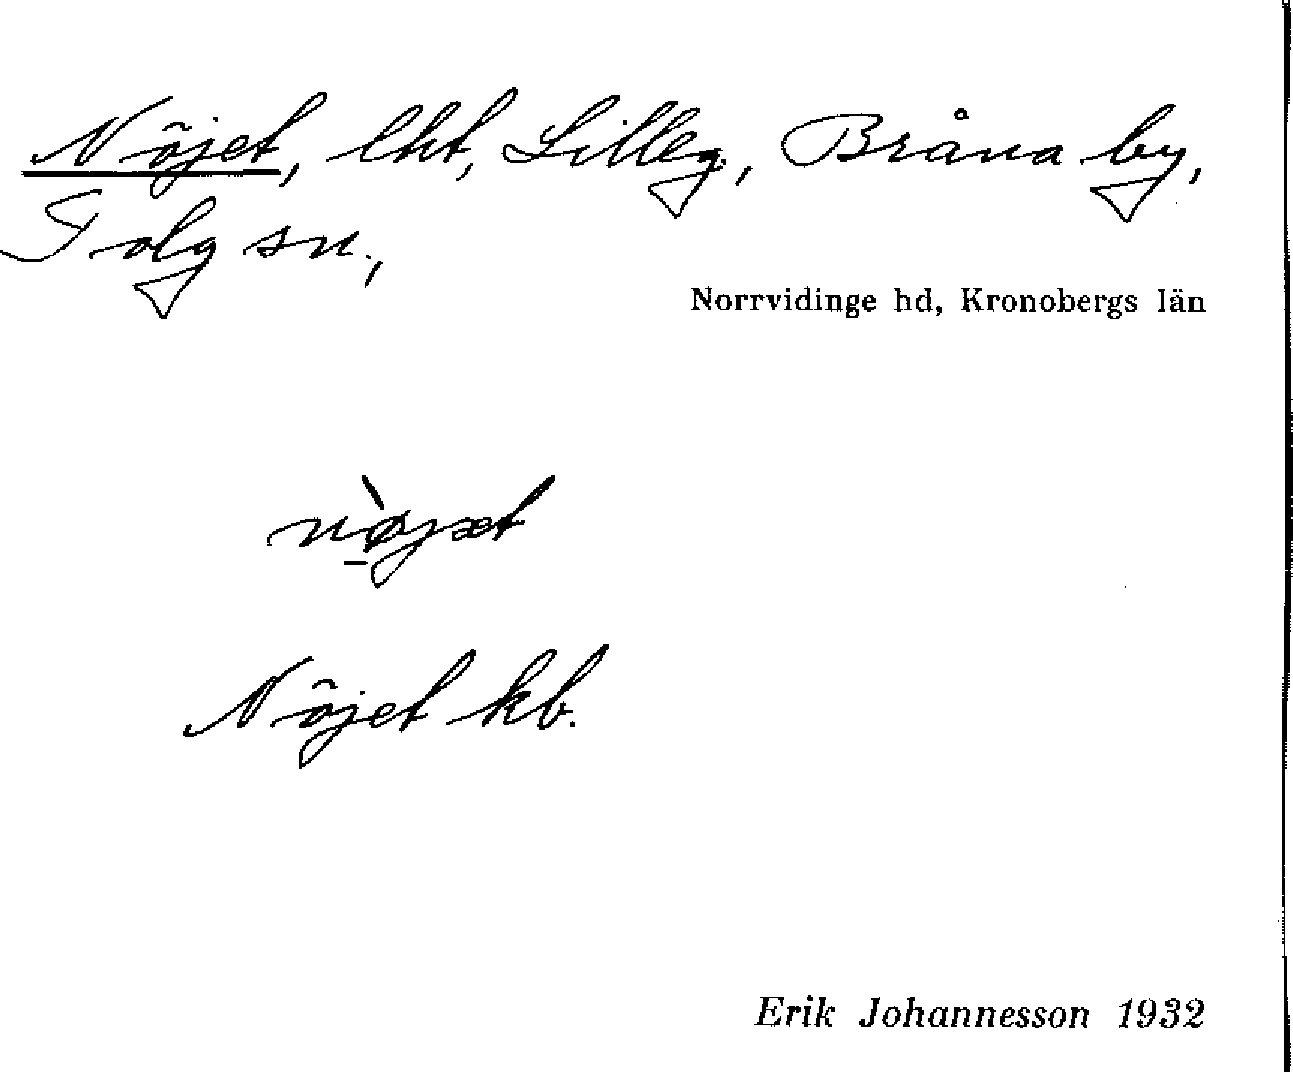 Nöjet, lht, Lilleg., Bråna by,
Tolg sn.,
Norrvidinge hd, Kronobergs län
nø̀jət
Nöjet kb.
Erik Johannesson 1932